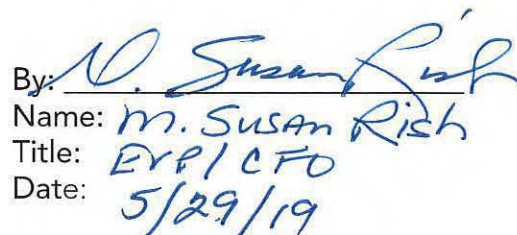 By: M. Susan Rish
Name: M. Susan Rish
Title: EVP/CFO
Date: 5/29/19